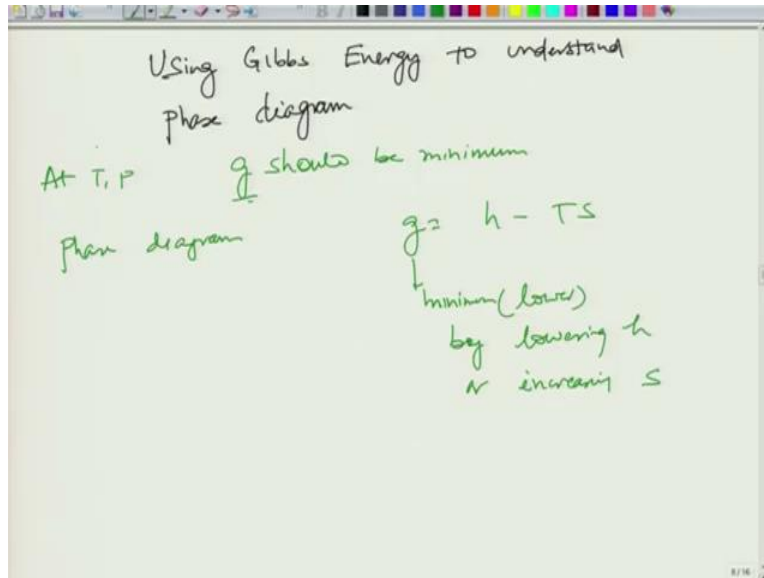 Using Gibbs Energy to understand
phase diagram
At T, P g should be minimum
phase diagram
g = h - TS
minimum (lower)
by lowering h
or increasing S
8/16